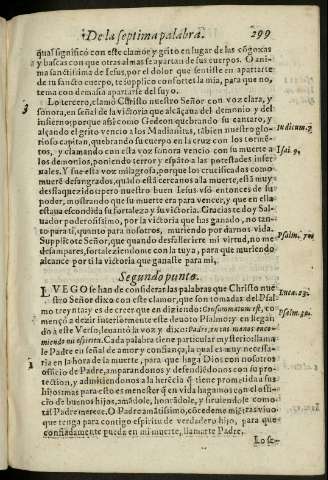 De la septima palabra. 299
qual significò con este clamor y grito en lugar de las cõgoxas
y bascas con que otras almas se apartan de sus cuerpos. O ani-
ma sanctissima de Iesus, por el dolor que sentiste en apartarte
de tu sancto cuerpo, te suplico confortes la mia, para que no
tema con demasia apartarse del suyo.
3 Lo tercero, clamò Christo nuestro Señor con voz clara, y
sonora, en señal de la victoria que alcãçaua del demonio y del
infierno: porque assi como Gedeon quebrando su cantaro, y
alçando el grito vencio a los Madianitas, tãbien nuestro glo- Iudicum.7
rioso capitan, quebrando su cuerpo en la cruz con los tormẽ-
tos, y clamando con esta voz sonora vencio con su muerte a Isai. 9.
los demonios, poniendo terror y espãto a las potestades infer
nales. Y fue esta voz milagrosa, porque los crucificados como
mueren desangrados, quando estã cercanos a la muerte, està muy
desflaquezido: pero nuestro buen Iesus vsò entonces de su
poder, mostrando que su muerte era para vencer, y que en ella
estaua escondida su fortaleza y su victoria. Gracias te doy Sal-
uador poderosissimo, por la victoria que has ganado, no tan-
to para ti, quanto para nosotros, muriendo por darnos vida.
Supplicote Señor, que quando desfalleciere mi virtud, no me Psalm. 70.
desampares, fortaleziendome con la tuya, para que muriendo
alcance por ti la victoria que ganaste para mi.
Segundo punto.
LVEGO se han de considerar las palabras que Christo nue Luca. 23.
stro Señor dixo con este clamor, que son tomadas del Psal
mo treynta; y es de creer que en diziendo: Consummatum est, co- Psalm. 30.
mençò a dezir interiormente este deuoto Psalmo: y en llegan
do a este Verso, leuantò la voz y dixo: Padre, en tus manos enco-
miendo mi espiritu. Cada palabra tiene particular mysterio: lla ma
1 le Padre en señal de amor y confiança, la qual es muy necessa-
ria en la hora de la muerte, para que haga Dios con nosotros
officio de Padre, amparandonos y defendiẽdonos con su pro-
tection, y admitiendonos a la herecia q̃ tiene prometida a sus
hijos: mas para esto es menester q̃ en vida hagamos con el offi-
cio de buenos hijos, amãdole, honrãdole, y siruiendole como
tal Padre merece. O Padre amãtissimo, cõcedeme miẽtras viuo
que tenga para contigo espiritu de verdadero hijo, para que
confiadamente pueda en mi muerte, llamarte Padre.
Lo se-